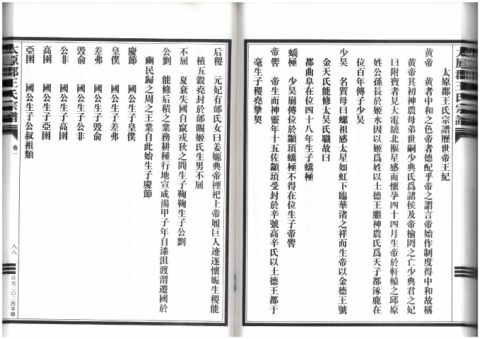 太原郡王氏宗譜
太原郡王氏宗譜歷世帝王紀
黃帝 黃者中和之色帝者德配乎帝之謂言帝始作制度得中和故稱
黃帝其初神農母弟世嗣少典氏爲諸侯及帝榆罔之亡少典君之妃
曰附寶者見大電繞北樞星感而懷孕四十四月生帝於軒轅之邱原
姓公孫長於姬水因以姬爲姓以土德王繼神農氏爲天子都涿鹿在
位百年傳子少昊
少昊 名質母曰嫘祖感太星如虹下臨華渚之祥而生帝以金德王號
金天氏能修太昊氏職故曰
都曲阜在位四十八年生子蟜極
蟜極 少昊崩傳位於顓頊蟜極不得在位生子帝嚳
帝嚳 帝生而神靈年十五佐顓頊受封於辛號高辛氏以土德王都于
亳生子稷堯摯契
后稷 元妃有邰氏女曰姜嫄與帝禋祀上帝履巨人迹遂懷娠生稷能
植五穀堯封於邰賜姬氏生男不屈
不屈 夏衰失國自竄戎狄之間生子鞠鞠生子公劉
公劉 能修后稷之業務耕種行地宜成湯甲子年自漆沮渡渭遷國於
豳民歸之周之王業自此始生子慶節
慶節 國公生子皇僕
皇僕 國公生子差弗
差弗 國公生子毀俞
毀俞 國公生子公非
公非 國公生子高圉
高圉 國公生子亞圉
亞圉 國公生子公叔祖類
太原郡王氏宗譜 卷一 八八